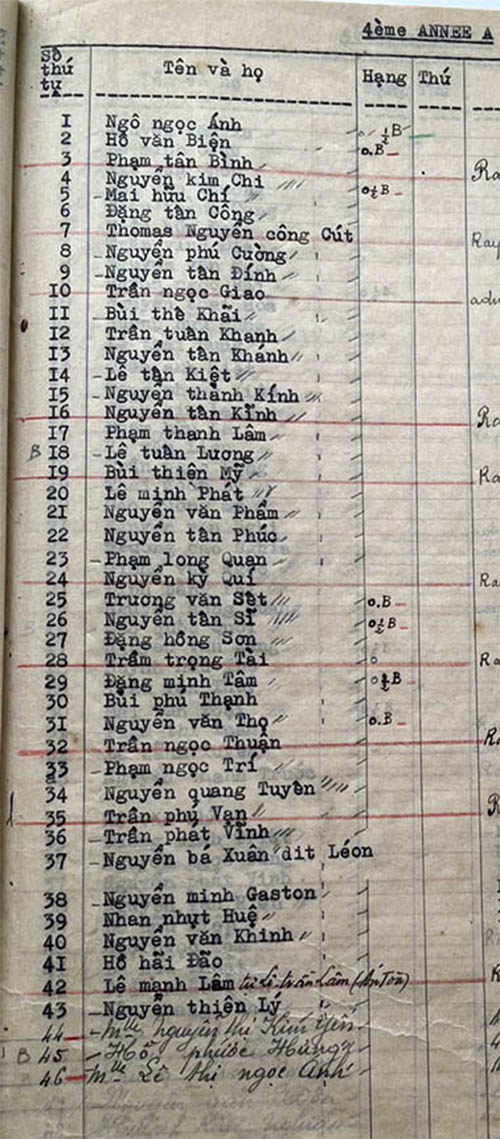 4ème ANNEE A
Số thứ tự Tên và họ Hạng Thứ
1 Ngô ngọc Ánh
2 Hồ văn Biện 0 ½ B
3 Phạm tân Bình 0.B
4 Nguyễn kim Chi Ra
5 Mai hữu Chí 0½ B
6 Đặng tân Công
7 Thomas Nguyễn công Cút
8 Nguyễn phú Cường Ray
9 Nguyễn tân Đính
10 Trần ngọc Giao
11 Bùi thế Khải
12 Trần tuấn Khanh
13 Nguyễn tân Khánh
14 Lê tân Kiệt
15 Nguyễn thành Kính
16 Nguyễn tân Kĩnh Ra
17 Phạm thanh Lâm
B 18 Lê tuân Lương
19 Bùi thiện Mỹ Ra
20 Lê minh Phát
21 Nguyễn văn Phẩm
22 Nguyễn tân Phúc
23 Phạm long Quan
24 Nguyễn kỳ Quí Ra
25 Trương văn Sệt 0.B
26 Nguyễn tân Sĩ 0½ B
27 Đặng hồng Sơn
28 Trầm trọng Tài Ra
29 Đặng minh Tâm 0½ B
30 Bùi phú Thạnh
31 Nguyễn văn Thọ 0.B
32 Trần ngọc Thuận
33 Phạm ngọc Trí
34 Nguyễn quang Tuyên
35 Trần phú Vạn
36 Trần phát Vĩnh
37 Nguyễn bá Xuân dit Léon
38 Nguyễn minh Gaston
39 Nhan nhựt Huệ
40 Nguyễn văn Khinh
41 Hồ hãi Đão
42 Lê mạnh Lâm
43 Nguyễn thiện Lý
44 Mlle nguyễn thị Kim Yến
B 45 Hồ phước Hùng
46 Mlle Lê thị ngọc Anh